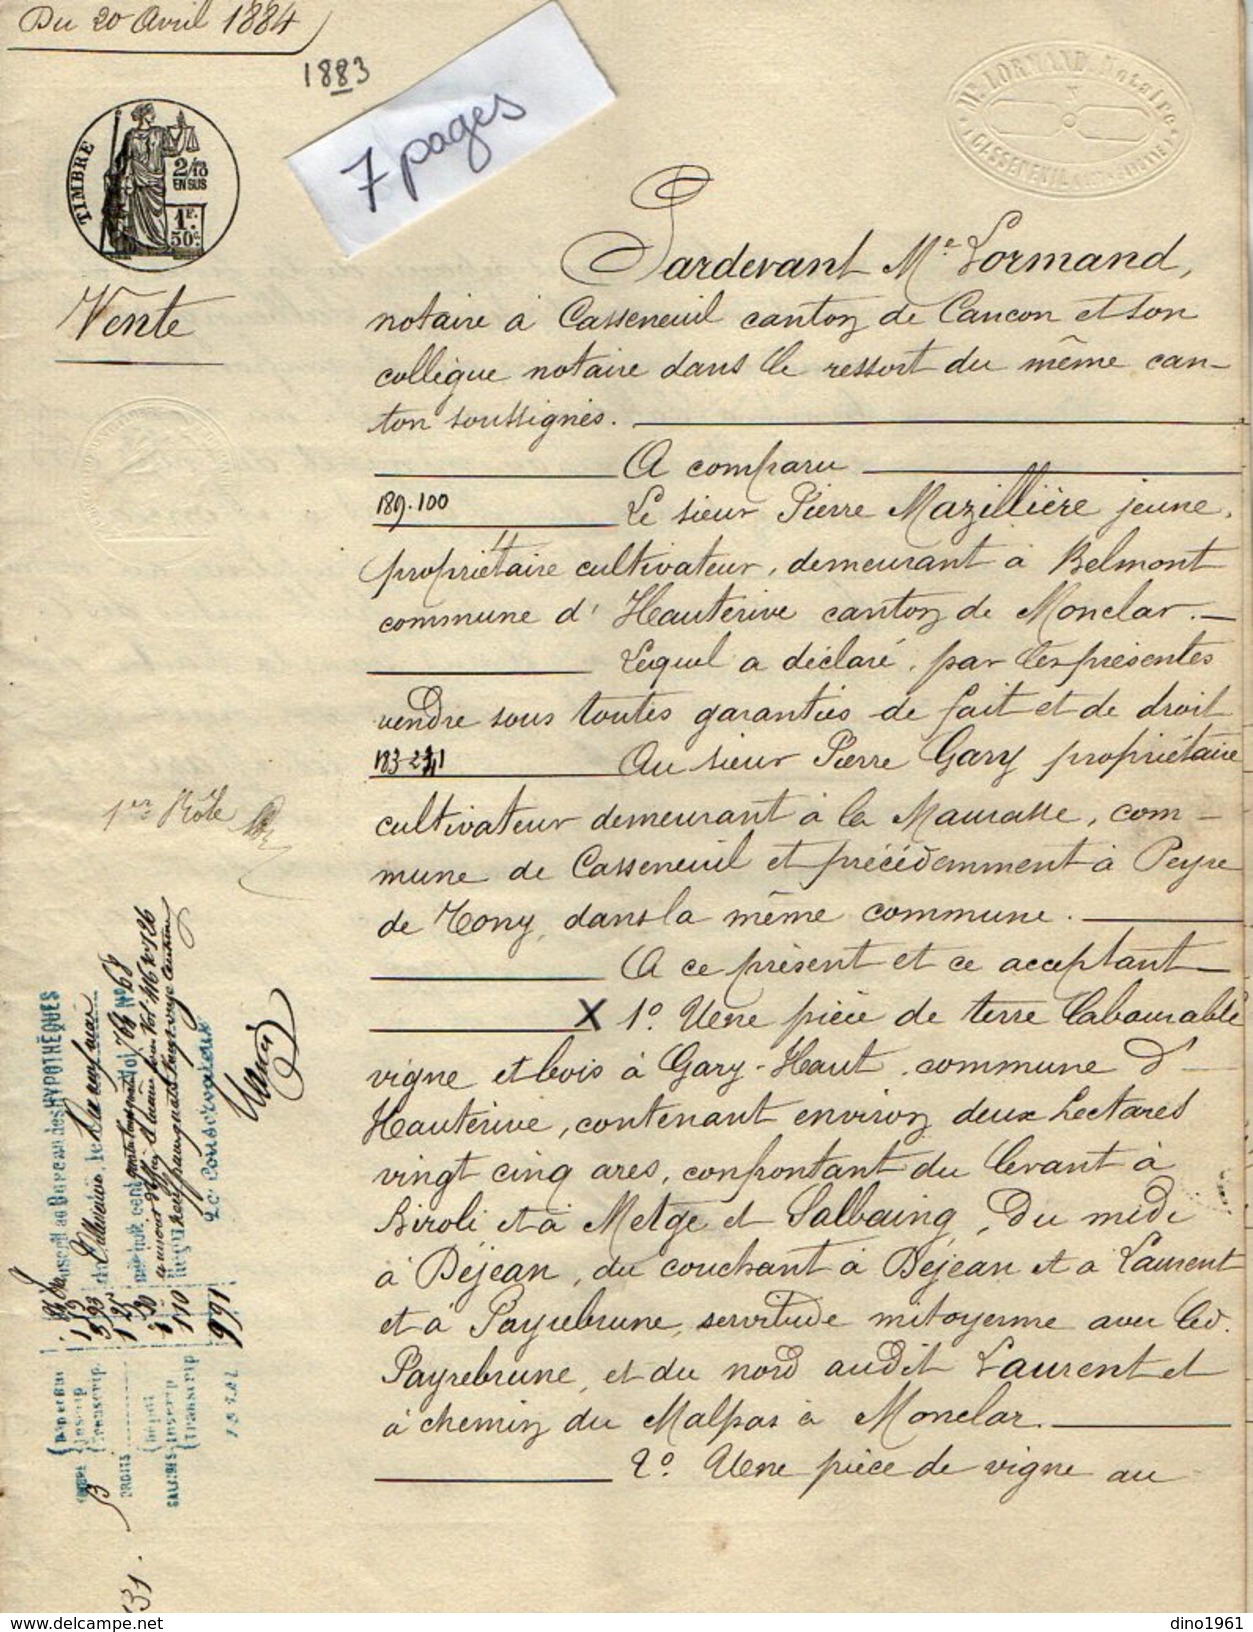 Du 20 Avril 1884
1883
7 pages
Me LORMAND Notaire
CASSENEUIL
TIMBRE
2/10
EN SUS
1F.
50c.
Vente
Pardevant Me Lormand,
notaire à Casseneuil canton de Cancon et son
collègue notaire dans le ressort du même can-
ton soussignés.
A comparu
189.100
Le sieur Pierre Mazillière jeune,
propriétaire cultivateur, demeurant à Belmont
commune d'Hauterive canton de Monclar.
Lequel a déclaré, par les présentes
vendre sous toutes garanties de fait et de droit
Au sieur Pierre Gary propriétaire
cultivateur demeurant à la Maurasse, com-
mune de Casseneuil et précédemment à Peyre
de Tony, dans la même commune.
A ce présent et ce acceptant
X 1o. Une pièce de terre labourable
vigne et bois à Gary-Haut, commune d'
Hauterive, contenant environ deux hectares
vingt cinq ares, confrontant du levant à
Biroli et à Metge et Salbaing, du midi
à Déjean, du couchant à Déjean et à Laurent
et à Payrebrune, servitude mitoyenne avec led.
Payrebrune, et du nord audit Laurent et
à chemin du Malpas à Monclar.
2o. Une pièce de vigne au
1er Rôle
Transcrit au Bureau des HYPOTHÈQUES
de Villeneuve, le
Vol. 768 No 68
Le Conservateur
991
DROITS
SALAIRES
131.
dino1961